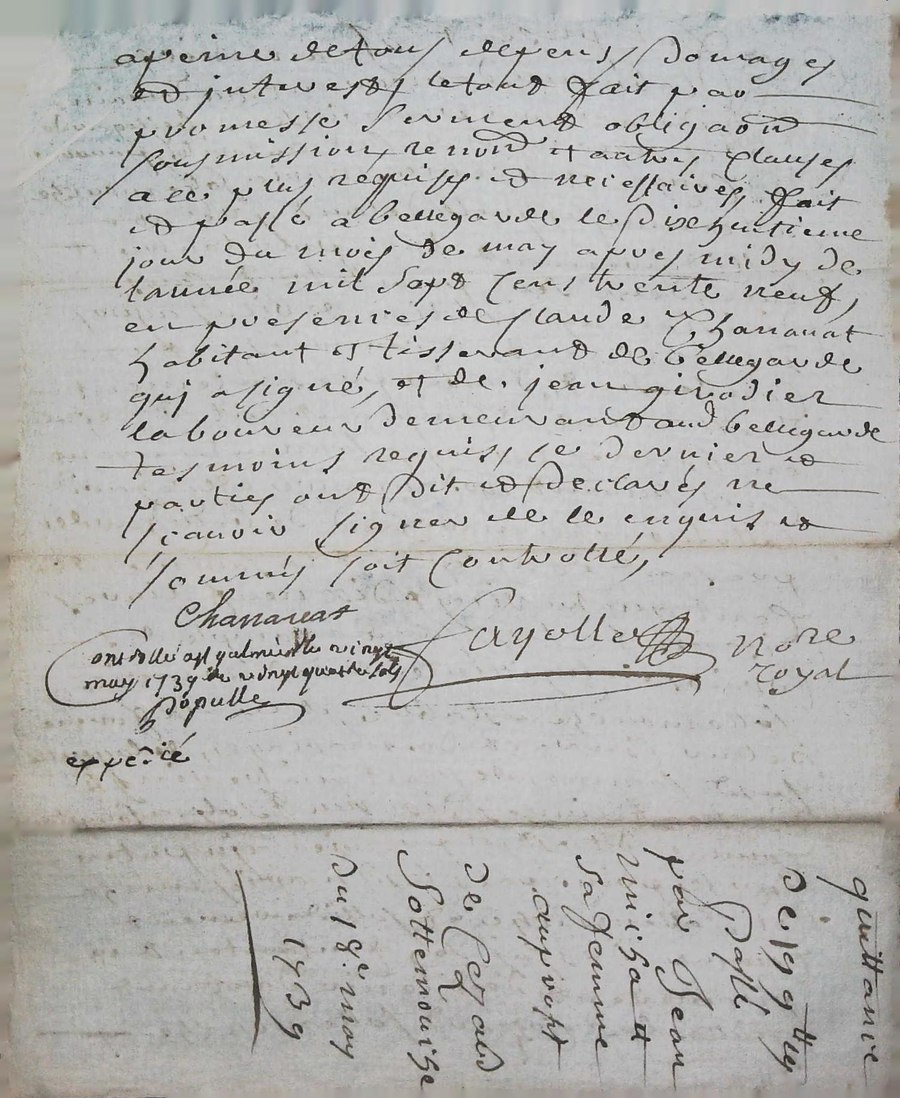 apeine de tous depens Domages
et interests le tout fait par
promesse serment obligaon
soumission, renon et autres clauses
a ce plus requises et necessaires, fait
et passé a bellegarde le Dixhuitieme
jour du mois de may apres midy de
lannée mil sept cens trente neuf,
en presences de Claude Chanauat
habitant et tisserand de bellegarde
qui a signé, et de jean girodier
laboureur demeurant aud bellegarde
tesmoins requis, ce dernier et
parties ont dit et declarés ne
scavoir signer de le enquis et
sommés soit Controllé,
Chanauat
Fayolle Nore
royal
Controllé a st galmier le vingt
may 1739 vingt quatre sols
Populle
expe.ié
quittance
de 199tt
Passé
par Jean
michat
sa femme
au proft
de
Sottemouche
du 18e may
1739